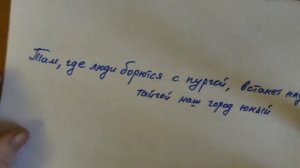 Там, где люди борются с пургой, встанет над
тайгой наш город юный